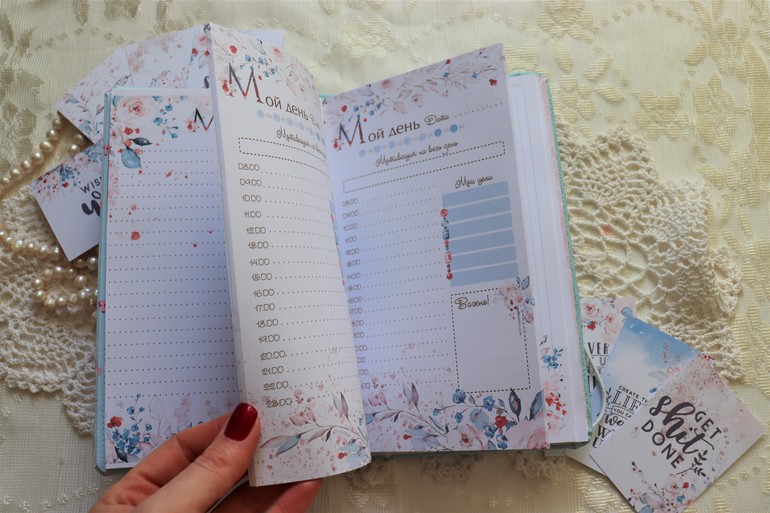 WIS
М
Мой день
Мотивация на весь
08.00
09.00
10.00
11.00
12.00
13.00
14.00
15.00
16.00
17.00
18.00
19.00
20.00
21.00
22.00
23.00
Мой день Дата
Мотивация на весь день
Мои цели
08.00
09.00
10.00
11.00
12.00
13.00
14.00
15.00
16.00
17.00
18.00
19.00
20.00
21.00
22.00
23.00
Важно!
CREATE
LIFE
GET
shit
DONE